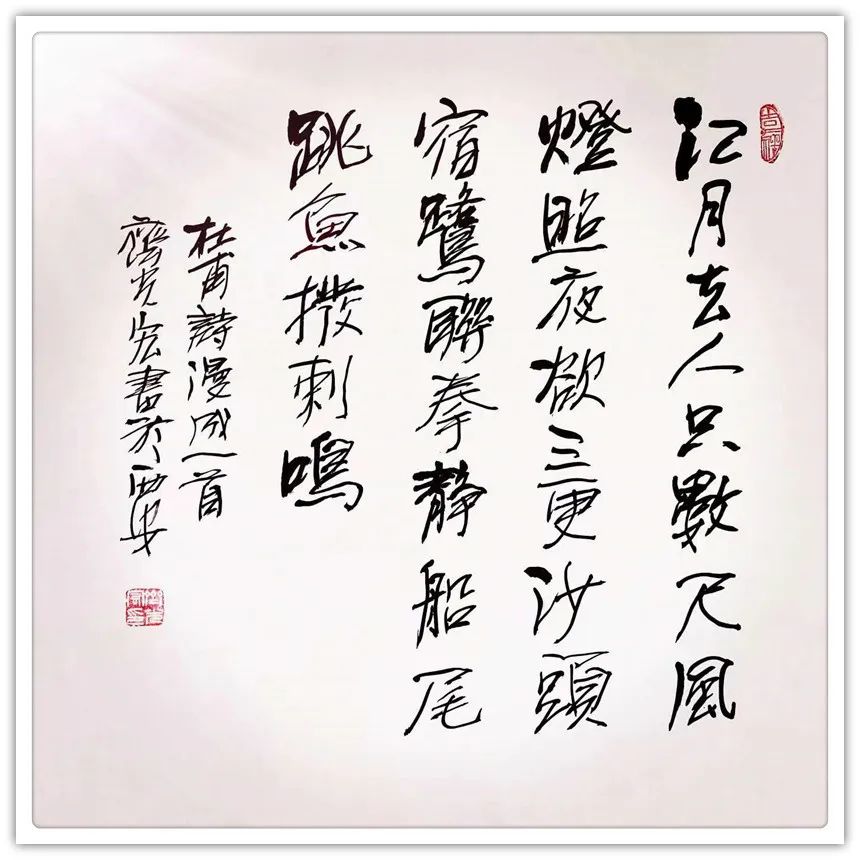 吉祥
江月去人只數尺風
燈照夜欲三更沙頭
宿鷺聯拳靜船尾
跳魚撥刺鳴
杜甫詩漫成一首
齊光宏書於西安